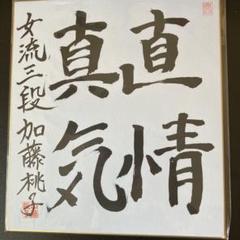 直情
真気
女流三段 加藤桃子